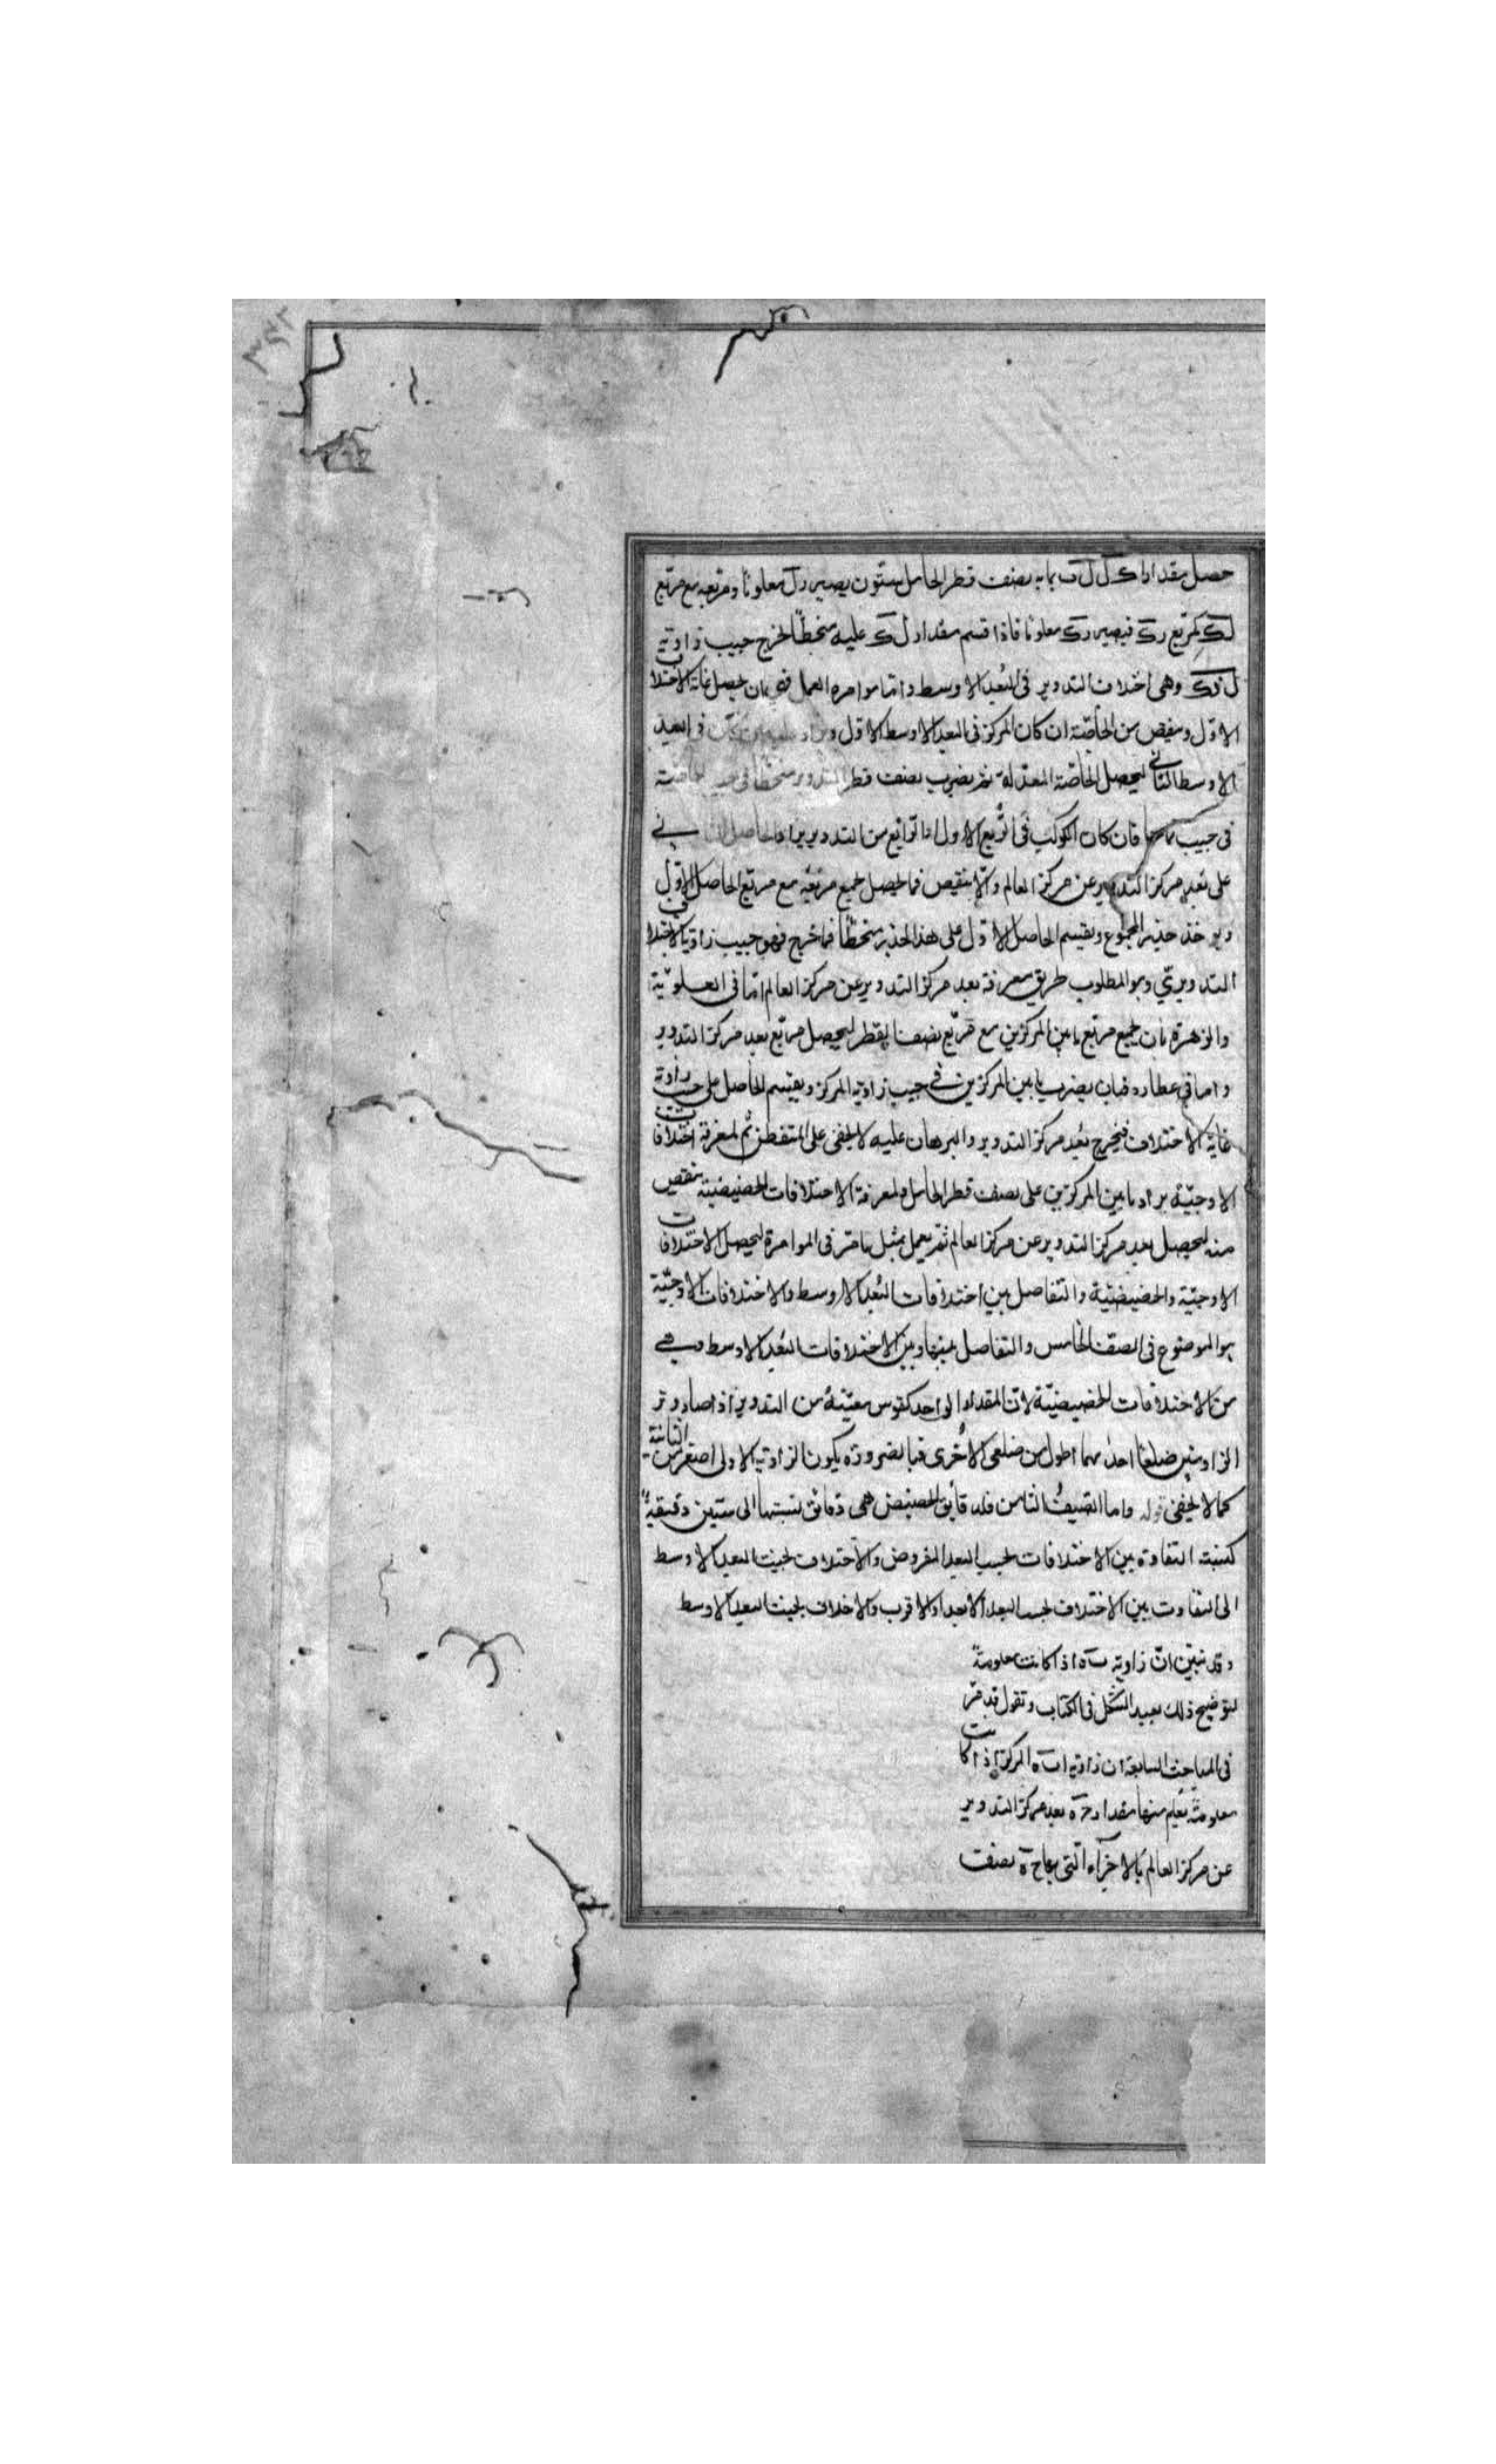 حصل مقدارا ك ل ل ف بما به نصف قطر الحامل ستون يصير دل معلوما ومربعه مع مربع
ل ك كمربع د ك فيصير د ك معلوما فاذا قسم مقدار ل ك عليه منحطا لخرج جيب زاوية
ل د ك وهى اختلاف التدوير فى البعد الاوسط واما موامره العمل فهى بان يحصل غاية الاختلاف
الاول وينقص من الخاصة ان كان المركز فى البعد الاوسط الاول فى البعد
الاوسط الثانى ليحصل الخاصة المعدلة ثم يضرب نصف قطر التدوير منحطا فى جيب الخاصة
فى جيب تمامها فان كان الكوكب فى الربع الاول او الرابع من التدوير يزاد الحاصل الثانى
على بعد مركز التدوير عن مركز العالم والا ينقص فما يحصل يجمع مربعه مع مربع الحاصل الاول
ويوخذ جذر المجموع ويقسم الحاصل الاول على هذا الجذر منحطا فما خرج فهو جيب زاوية الاختلاف
التدويرى وهو المطلوب طريق معرفة بعد مركز التدوير عن مركز العالم اما فى العلوية
والزهرة بان يجمع مربع ما بين المركزين مع مربع نصف القطر ليحصل مربع بعد مركز التدوير
واما فى عطارد فبان يضرب ما بين المركزين فى جيب زاوية المركز ويقسم الحاصل على جيب زاوية
غاية الاختلاف فيخرج بعد مركز التدوير والبرهان عليه لا يخفى على المتفطن ثم لمعرفة اختلافات
الاوجية يزاد ما بين المركزين على نصف قطر الحامل ولمعرفة الاختلافات الحضيضية ينقص
منه ليحصل بعد مركز التدوير عن مركز العالم ثم يعمل بمثل ما مر فى الموامرة ليحصل الاختلافات
الاوجية والحضيضية والتفاضل بين اختلافات البعد الاوسط والاختلافات الاوجية
هو الموضوع فى الصف الخامس والتفاضل بينها وبين الاختلافات البعد الاوسط وهى
من الاختلافات الحضيضية لان المقدار الواحد كقوس معينة من التدوير اذا صار وتر
الزاويتين ضلعا احدهما اطول من ضلعى الاخرى فبالضرورة يكون الزاوية الاولى اصغر من الثانية
كما لا يخفى قوله واما الصف الثامن فلدقايق الحضيض هى دقائق نسبتها الى ستين دقيقة
كنسبة التفاوت بين الاختلافات بحسب البعد المفروض والاختلاف بحسب البعد الاوسط
الى التفاوت بين الاختلاف بحسب البعد الابعد او الاقرب والاختلاف بحسب البعد الاوسط
وقد تبين ان زاوية ب ه اذا كانت معلومة
لتوضيح ذلك نعيد الشكل فى الكتاب ونقول قد مر
فى المباحث السابقة ان زاوية ا ب ه المركز اذا كانت
معلومة يعلم منها مقدار ح ه بعد مركز التدوير
عن مركز العالم بالاجزاء التى بها ح ه نصف